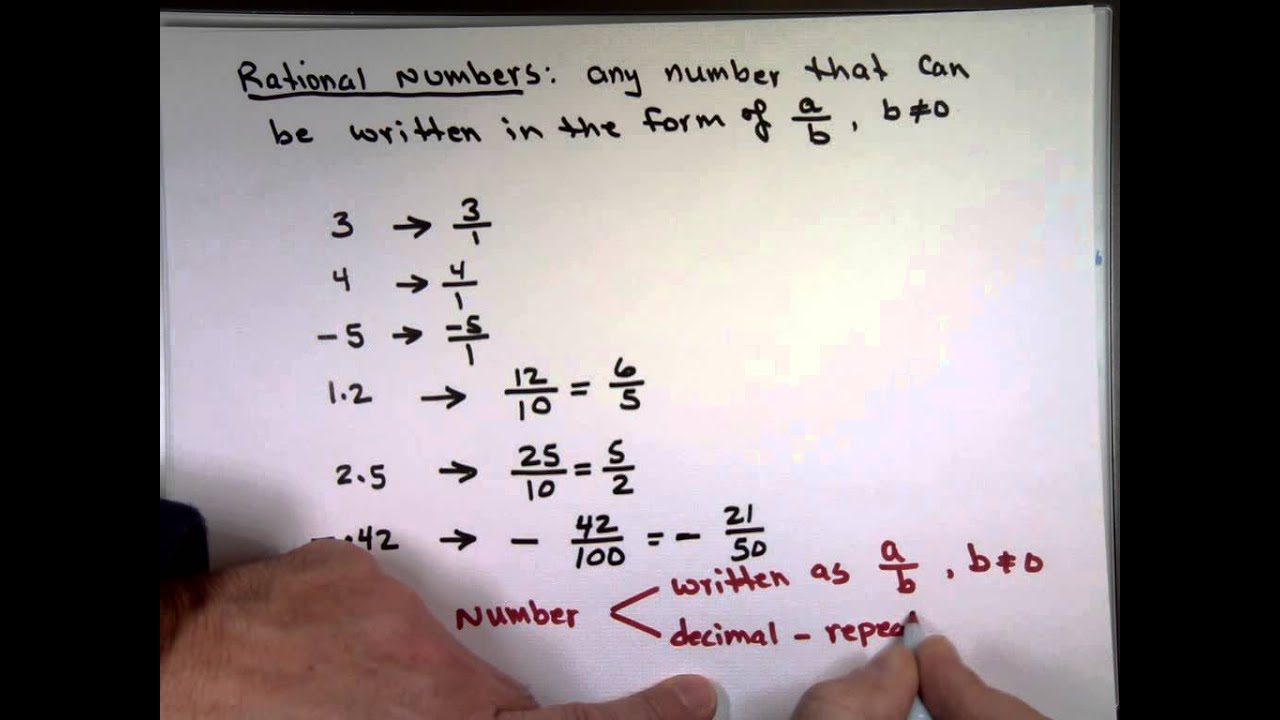 Rational Numbers: any number that can
be written in the form of a/b, b≠0
3 → 3/1
4 → 4/1
-5 → -5/1
1.2 → 12/10 = 6/5
2.5 → 25/10 = 5/2
-.42 → - 42/100 = - 21/50
written as a/b, b≠0
Number <
decimal - repea